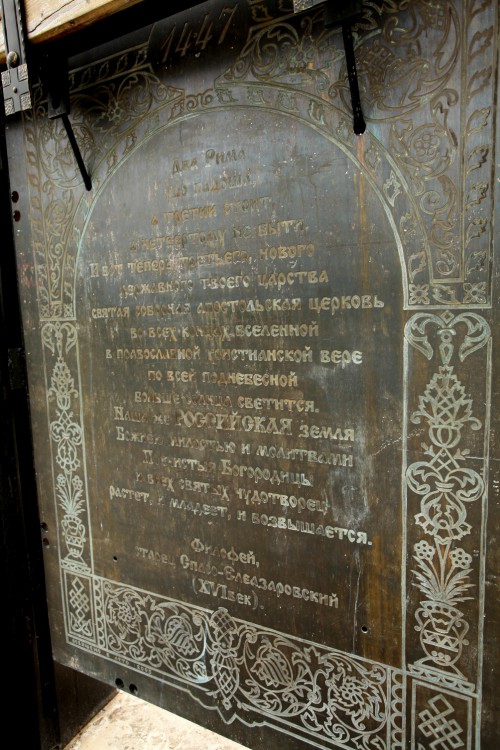 1447
Два Рима
падоша
а третий стоит,
а четвертому не быти.
И вот теперь третьего, нового
державного твоего царства
святая соборная апостольская церковь
во всех концах вселенной
в православной христианской вере
по всей поднебесной
больше солнца светится.
Наша же РОССИЙСКАЯ земля
Божией милостью и молитвами
Пречистыя Богородицы
и всех святых чудотворец
растет, и младеет, и возвышается.
Филофей,
старец Спасо-Елеазаровский
(XVI век).